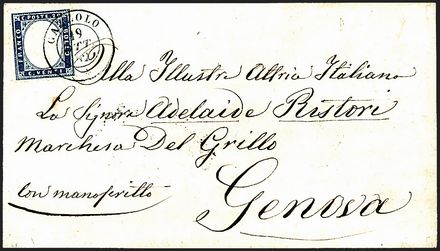 FRANCO
C. POSTE 20
BOLLO
C. VENTI
19
Alla Illustre Attrice Italiana
La Signora Adelaide Ristori
Marchesa Del Grillo
Con manoscritto
Genova